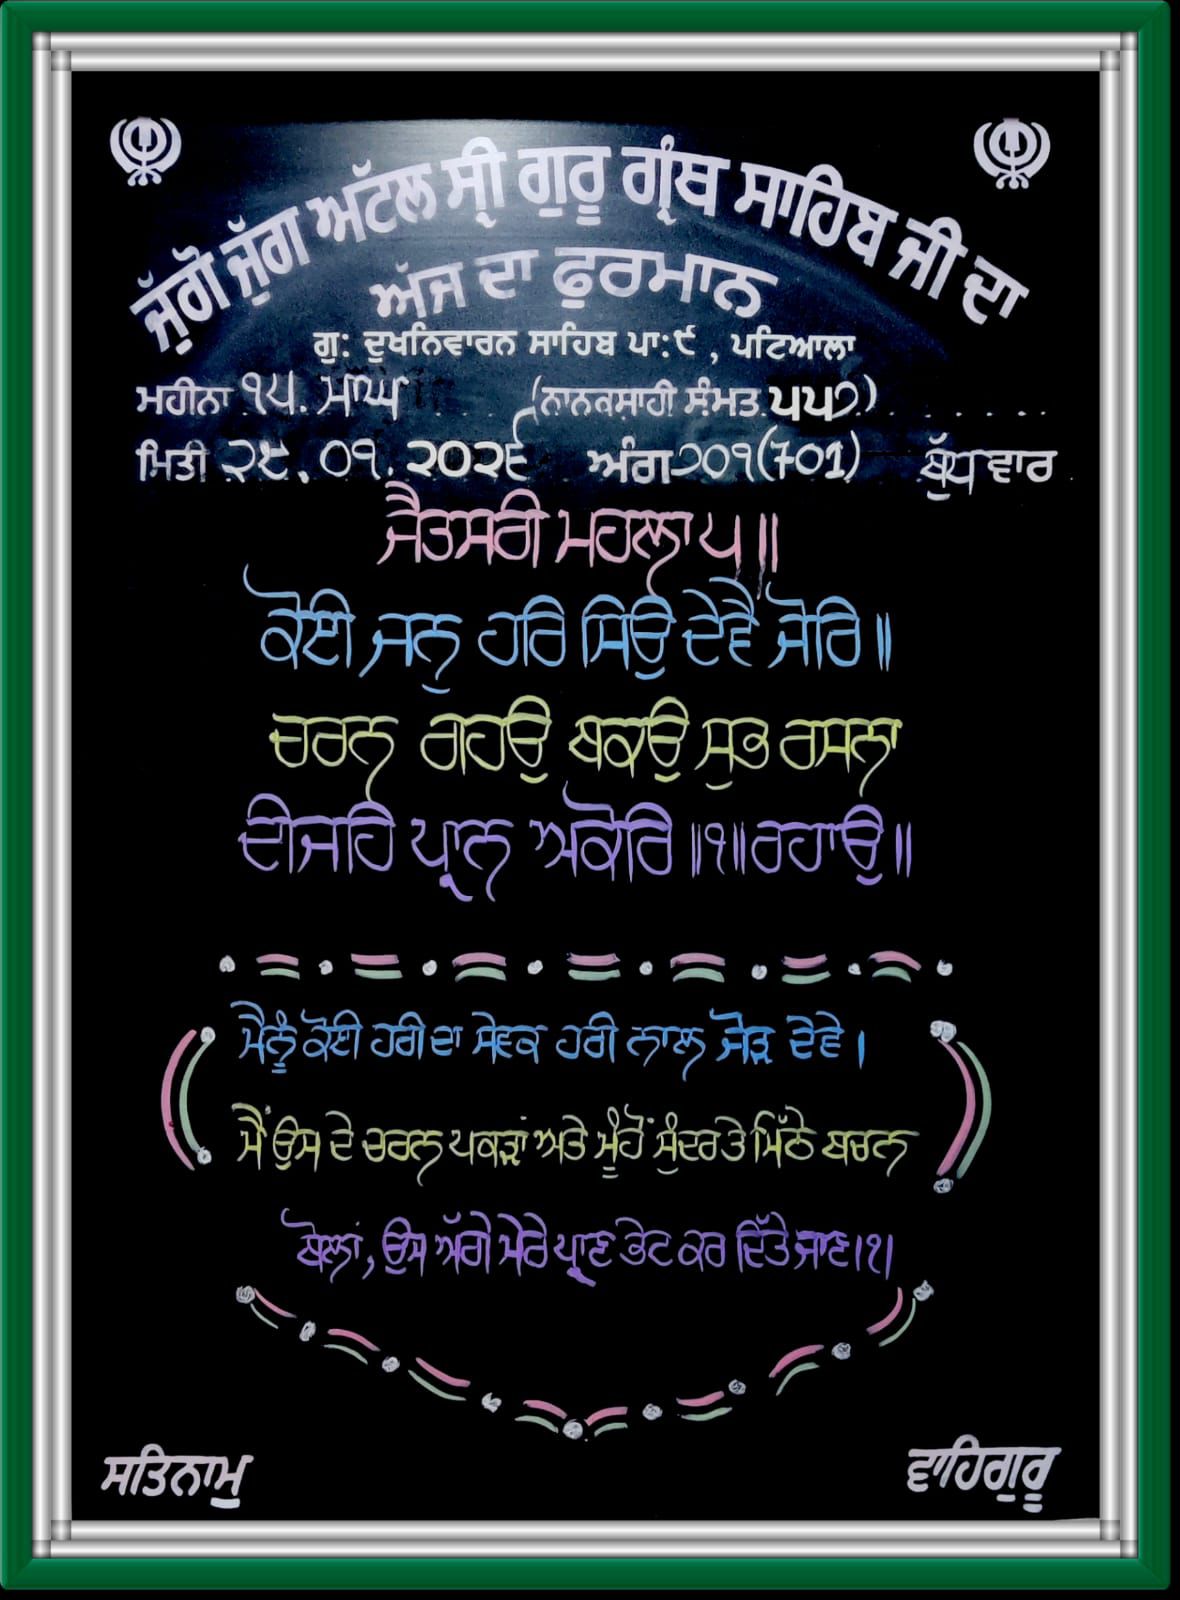 ਜੁੱਗੋ ਜੁੱਗ ਅਟੱਲ ਸ੍ਰੀ ਗੁਰੂ ਗ੍ਰੰਥ ਸਾਹਿਬ ਜੀ ਦਾ
ਅੱਜ ਦਾ ਫੁਰਮਾਨ
ਗੁ: ਦੁਖਨਿਵਾਰਨ ਸਾਹਿਬ ਪਾ:੯, ਪਟਿਆਲਾ
ਮਹੀਨਾ ੧੫. ਮਾਘ (ਨਾਨਕਸ਼ਾਹੀ ਸੰਮਤ ੫੫੭)
ਮਿਤੀ ੨੮.੦੧.੨੦੨੬ ਅੰਗ ੭੦੧(701) ਬੁੱਧਵਾਰ
ਜੈਤਸਰੀ ਮਹਲਾ ੫ ॥
ਕੋਈ ਜਨੁ ਹਰਿ ਸਿਉ ਦੇਵੈ ਜੋਰਿ ॥
ਚਰਨ ਗਹਉ ਬਕਉ ਸੁਭ ਰਸਨਾ
ਦੀਜਹਿ ਪ੍ਰਾਨ ਅਕੋਰਿ ॥੧॥ ਰਹਾਉ ॥
ਮੈਨੂੰ ਕੋਈ ਹਰੀ ਦਾ ਸੇਵਕ ਹਰੀ ਨਾਲ ਜੋੜ ਦੇਵੇ।
ਮੈਂ ਉਸ ਦੇ ਚਰਨ ਪਕੜਾਂ ਅਤੇ ਮੂੰਹੋਂ ਸੁੰਦਰ ਤੇ ਮਿੱਠੇ ਬਚਨ
ਬੋਲਾਂ, ਉਸ ਅੱਗੇ ਮੇਰੇ ਪ੍ਰਾਣ ਭੇਟ ਕਰ ਦਿੱਤੇ ਜਾਣ।੧।
ਸਤਿਨਾਮੁ ਵਾਹਿਗੁਰੂ